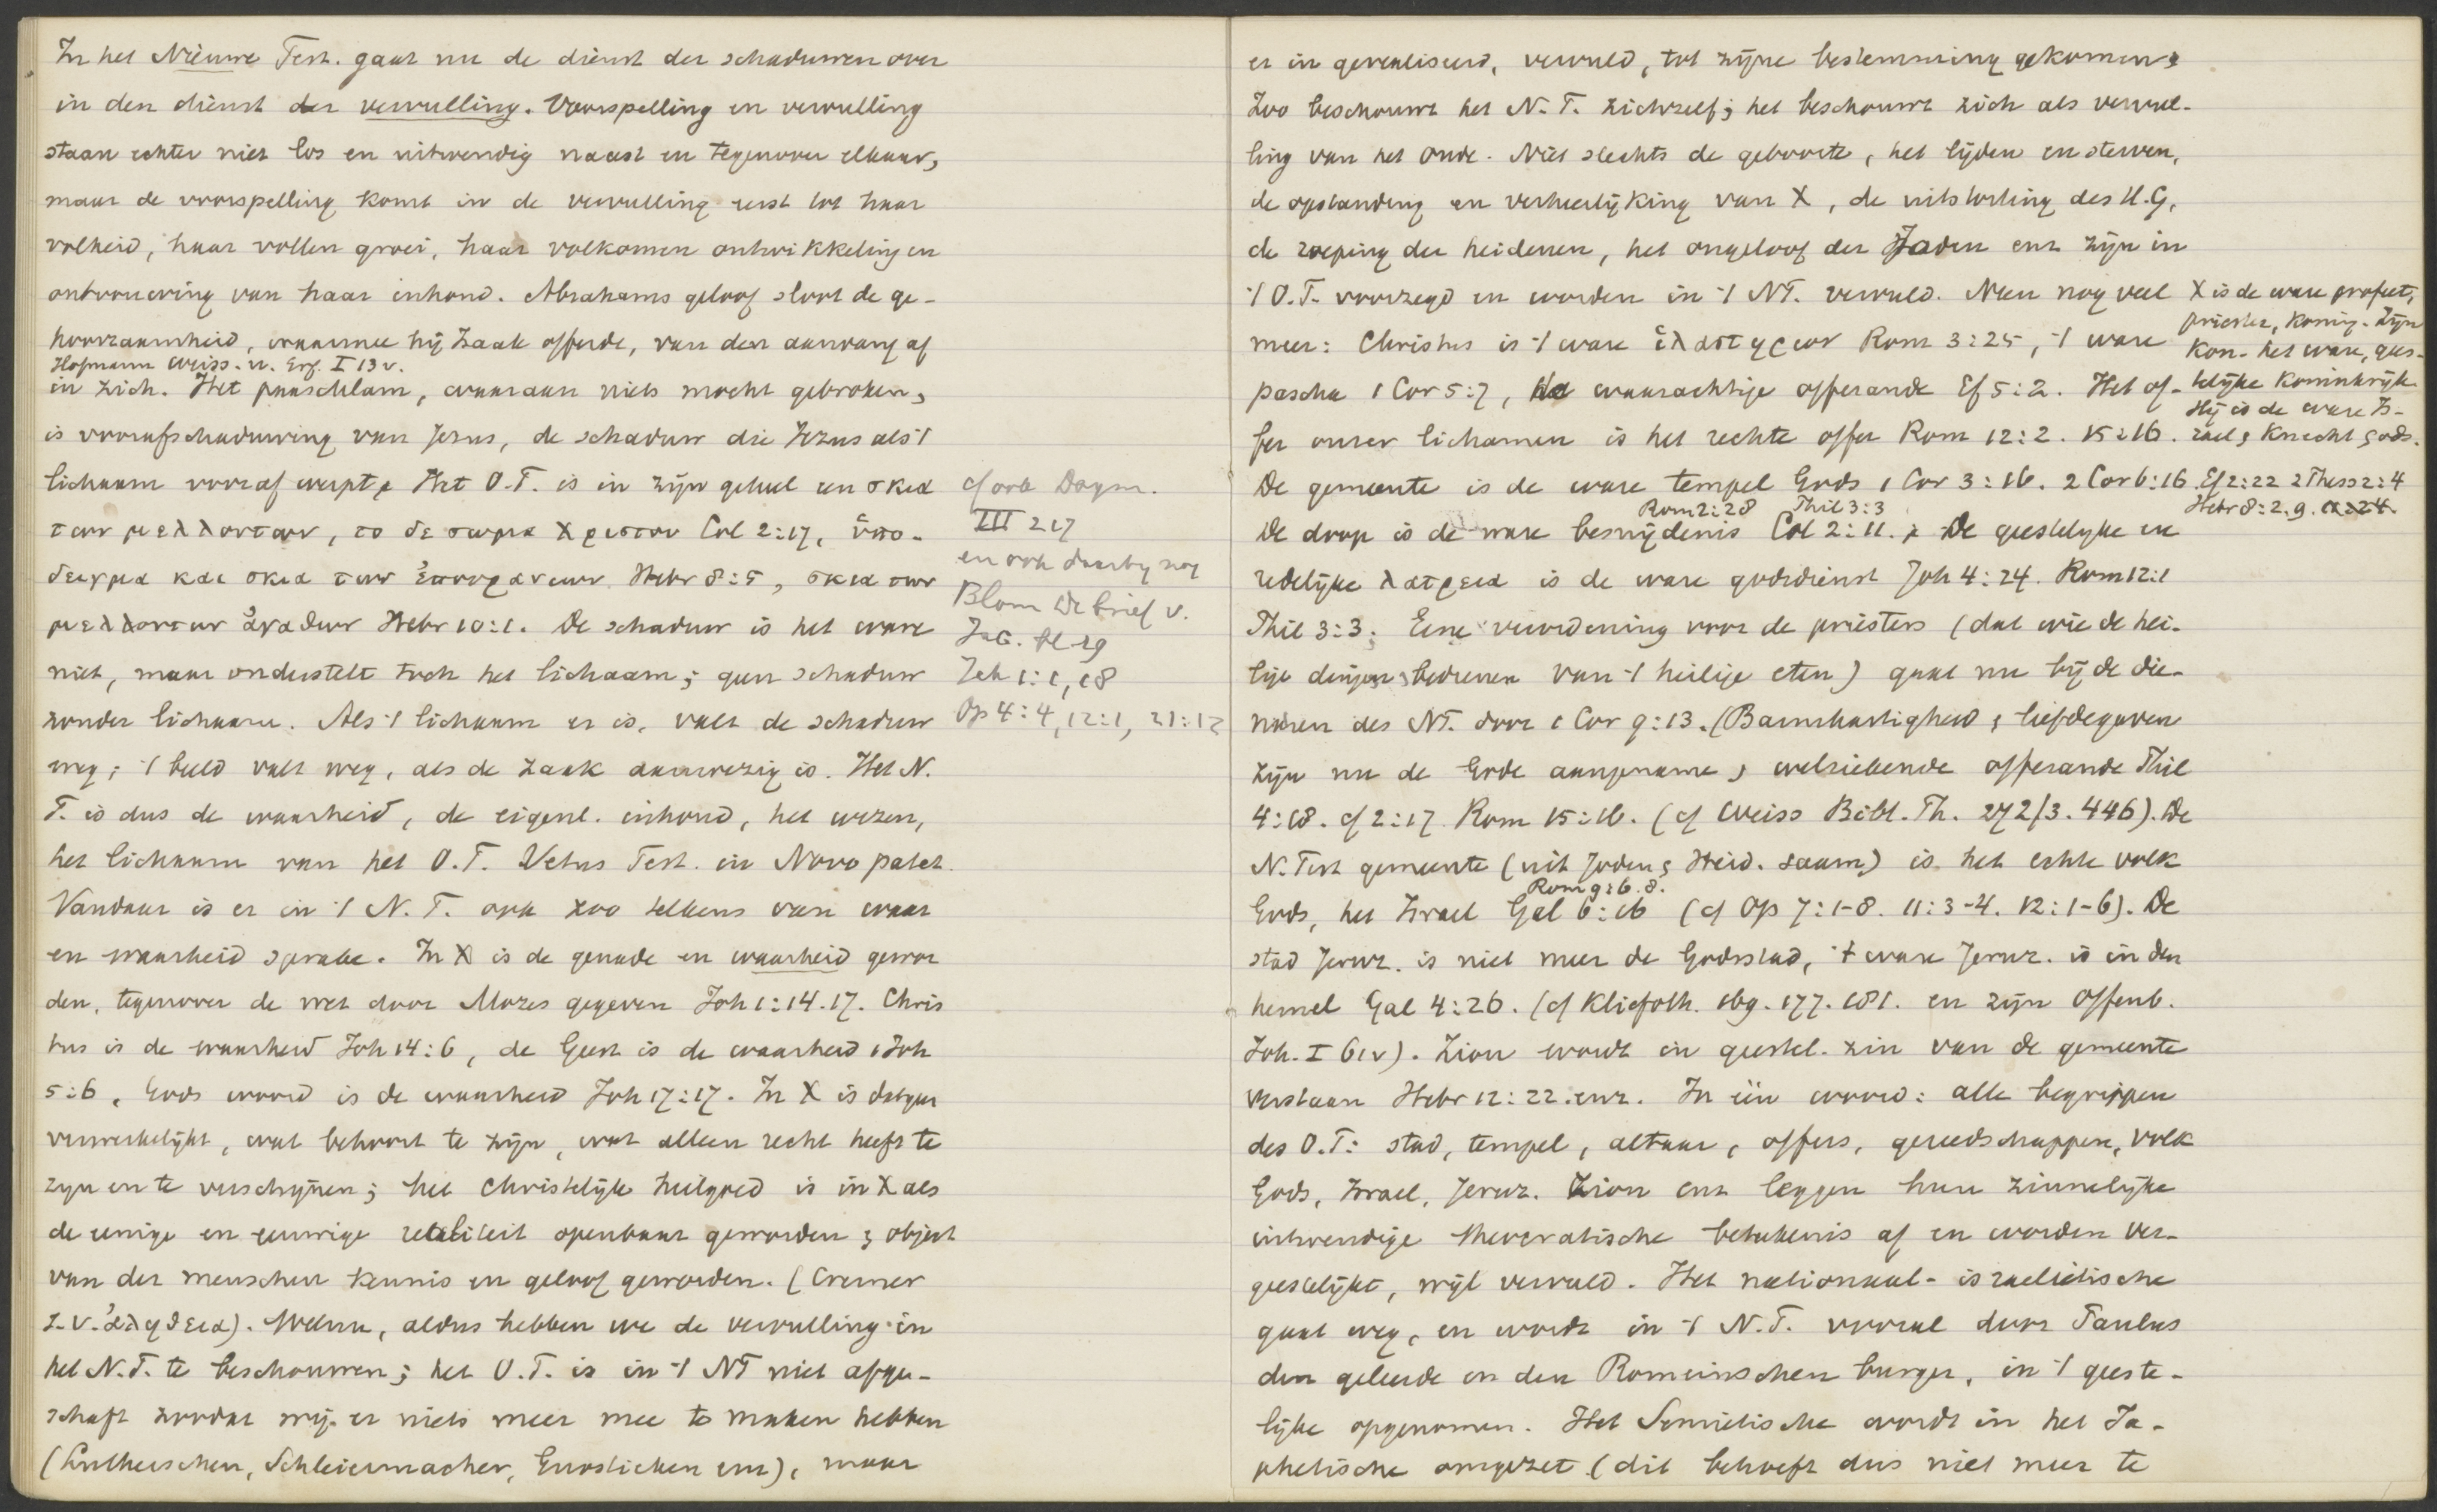 In het Nieuwe Test. gaat nu de dienst der schaduwen over
in den dienst der vervulling. Voorspelling en vervulling
staan echter niet los en uitwendig naast en tegenover elkaar,
maar de voorspelling komt in de vervulling eerst tot haar
volheid, haar vollen groei, haar volkomen ontwikkeling en
ontvouwing van haar inhoud. Abrahams geloof sloot de ge-
hoorzaamheid, waarmee hij Izaak offerde, van den aanvang af
Hofmann Weiss. u. Erf. I 13 v.
in zich. Het paaschlam, waaraan niets mocht gebroken,
is voorafschaduwing van Jezus, de schaduw die Jezus als 't
lichaam vooraf werpt. Het O.T. is in zijn geheel een σκια
των μελλοντων, το δε σωμα Χριστου Col 2:17, ὑπο-
δειγμα και σκια των ἐπουρανιων Hebr 8:5, σκια των
μελλοντων ἀγαθων Hebr 10:1. De schaduw is het ware
niet, maar onderstelt toch het lichaam; geen schaduw
zonder lichaam. Als 't lichaam er is, valt de schaduw
weg; 't beeld valt weg, als de zaak aanwezig is. Het N.
T. is dus de waarheid, de eigenl. inhoud, het wezen,
het lichaam van het O.T. Vetus Test. in Novo patet.
Vandaar is er in 't N.T. ook zoo telkens van waar
en waarheid sprake. In X is de genade en waarheid gewor
den, tegenover de wet door Mozes gegeven Joh 1:14.17. Chris
tus is de waarheid Joh 14:6, de Geest is de waarheid 1 Joh
5:6, Gods woord is de waarheid Joh 17:17. In X is datgeen
verwerkelijkt, wat behoort te zijn, wat alleen recht heeft te
zyn en te verschijnen; het Christelijk heilgoed is in X als
de eenige en eeuwige realiteit openbaar geworden & object
van der menschen kennis en geloof geworden. (Cremer
s.v. ἀληθεια). Welnu, aldus hebben we de vervulling in
het N.T. te beschouwen; het O.T. is in 't NT niet afge-
schaft zoodat wij er niets meer mee te maken hebben
(Lutherschen, Schleiermacher, Gnostieken enz), maar
cf ook Dogm.
III 217
en ook daarby nog
Blom De brief v.
Jac. bl 29
Jak 1:1, 18
Op 4:4, 12:1, 21:12
er in gerealiseerd, vervuld, tot zijne bestemming gekomen.
Zoo beschouwt het N.T. zichzelf; het beschouwt zich als vervul-
ling van het Oude. Niet slechts de geboorte, het lijden en sterven,
de opstanding en verheerlijking van X, de uitstorting des H.G,
de roeping der heidenen, het ongeloof der Joden enz zijn in
't O.T. voorzegd en worden in 't NT. vervuld. Neen nog veel
meer: Christus is 't ware ἱλαστηριον Rom 3:25, 't ware
pascha 1 Cor 5:7, de waarachtige offerande Ef 5:2. Het of-
fer onzer lichamen is het rechte offer Rom 12:2. 15:16.
X is de ware profeet,
priester, koning. Zijn
Kon- het ware, gees-
telijke koninkrijk
Hij is de ware Is-
rael, Knecht Gods.
De gemeente is de ware tempel Gods 1 Cor 3:16. 2 Cor 6:16 Ef 2:22 2 Thess 2:4
Hebr 8:2. 9.
Rom 2:28 Phil 3:3
De doop is de ware besnijdenis Col 2:11. De geestelyke en
redelijke λατρεια is de ware godsdienst Joh 4:24. Rom 12:1
Phil 3:3; Eene verordening voor de priesters (dat wie de hei-
lige dingen bedienen van 't heilige eten) gaat nu bij de die-
naren des NT. door 1 Cor 9:13. (Barmhartigheid & liefdegaven
zijn nu de Gode aangename, welriekende offerande Phil
4:18. cf 2:17 Rom 15:16. (cf Weiss Bibl. Th. 272/3. 446). De
N. Test gemeente (uit Joden & Heid. saam) is het echte volk
Rom 9:6.8.
Gods, het Israel Gal 6:16 (cf Op 7:1-8. 11:3-4. 12:1-6). De
stad Jeruz. is niet meer de Godsstad, 't ware Jeruz. is in den
hemel Gal 4:26. (cf Kliefoth. 169. 177. 181. en zijn Offenb.
Joh. I 61v). Zion wordt in geestel. zin van de gemeente
verstaan Hebr 12:22. enz. In één woord: alle begrippen
des O.T: stad, tempel, altaar, offers, gereedschappen, volk
Gods, Israel, Jeruz. Zion enz leggen hun zinnelijke
uitwendige theocratische beteekenis af en worden ver-
geestelijkt, wijl vervuld. Het nationaal-israelietische
gaat weg, en wordt in 't N.T. vooral door Paulus
den geleerde en den Romeinschen burger, in 't geeste-
lijke opgenomen. Het Semietische wordt in het Ja-
phetische omgezet (dit behoeft dus niet meer te